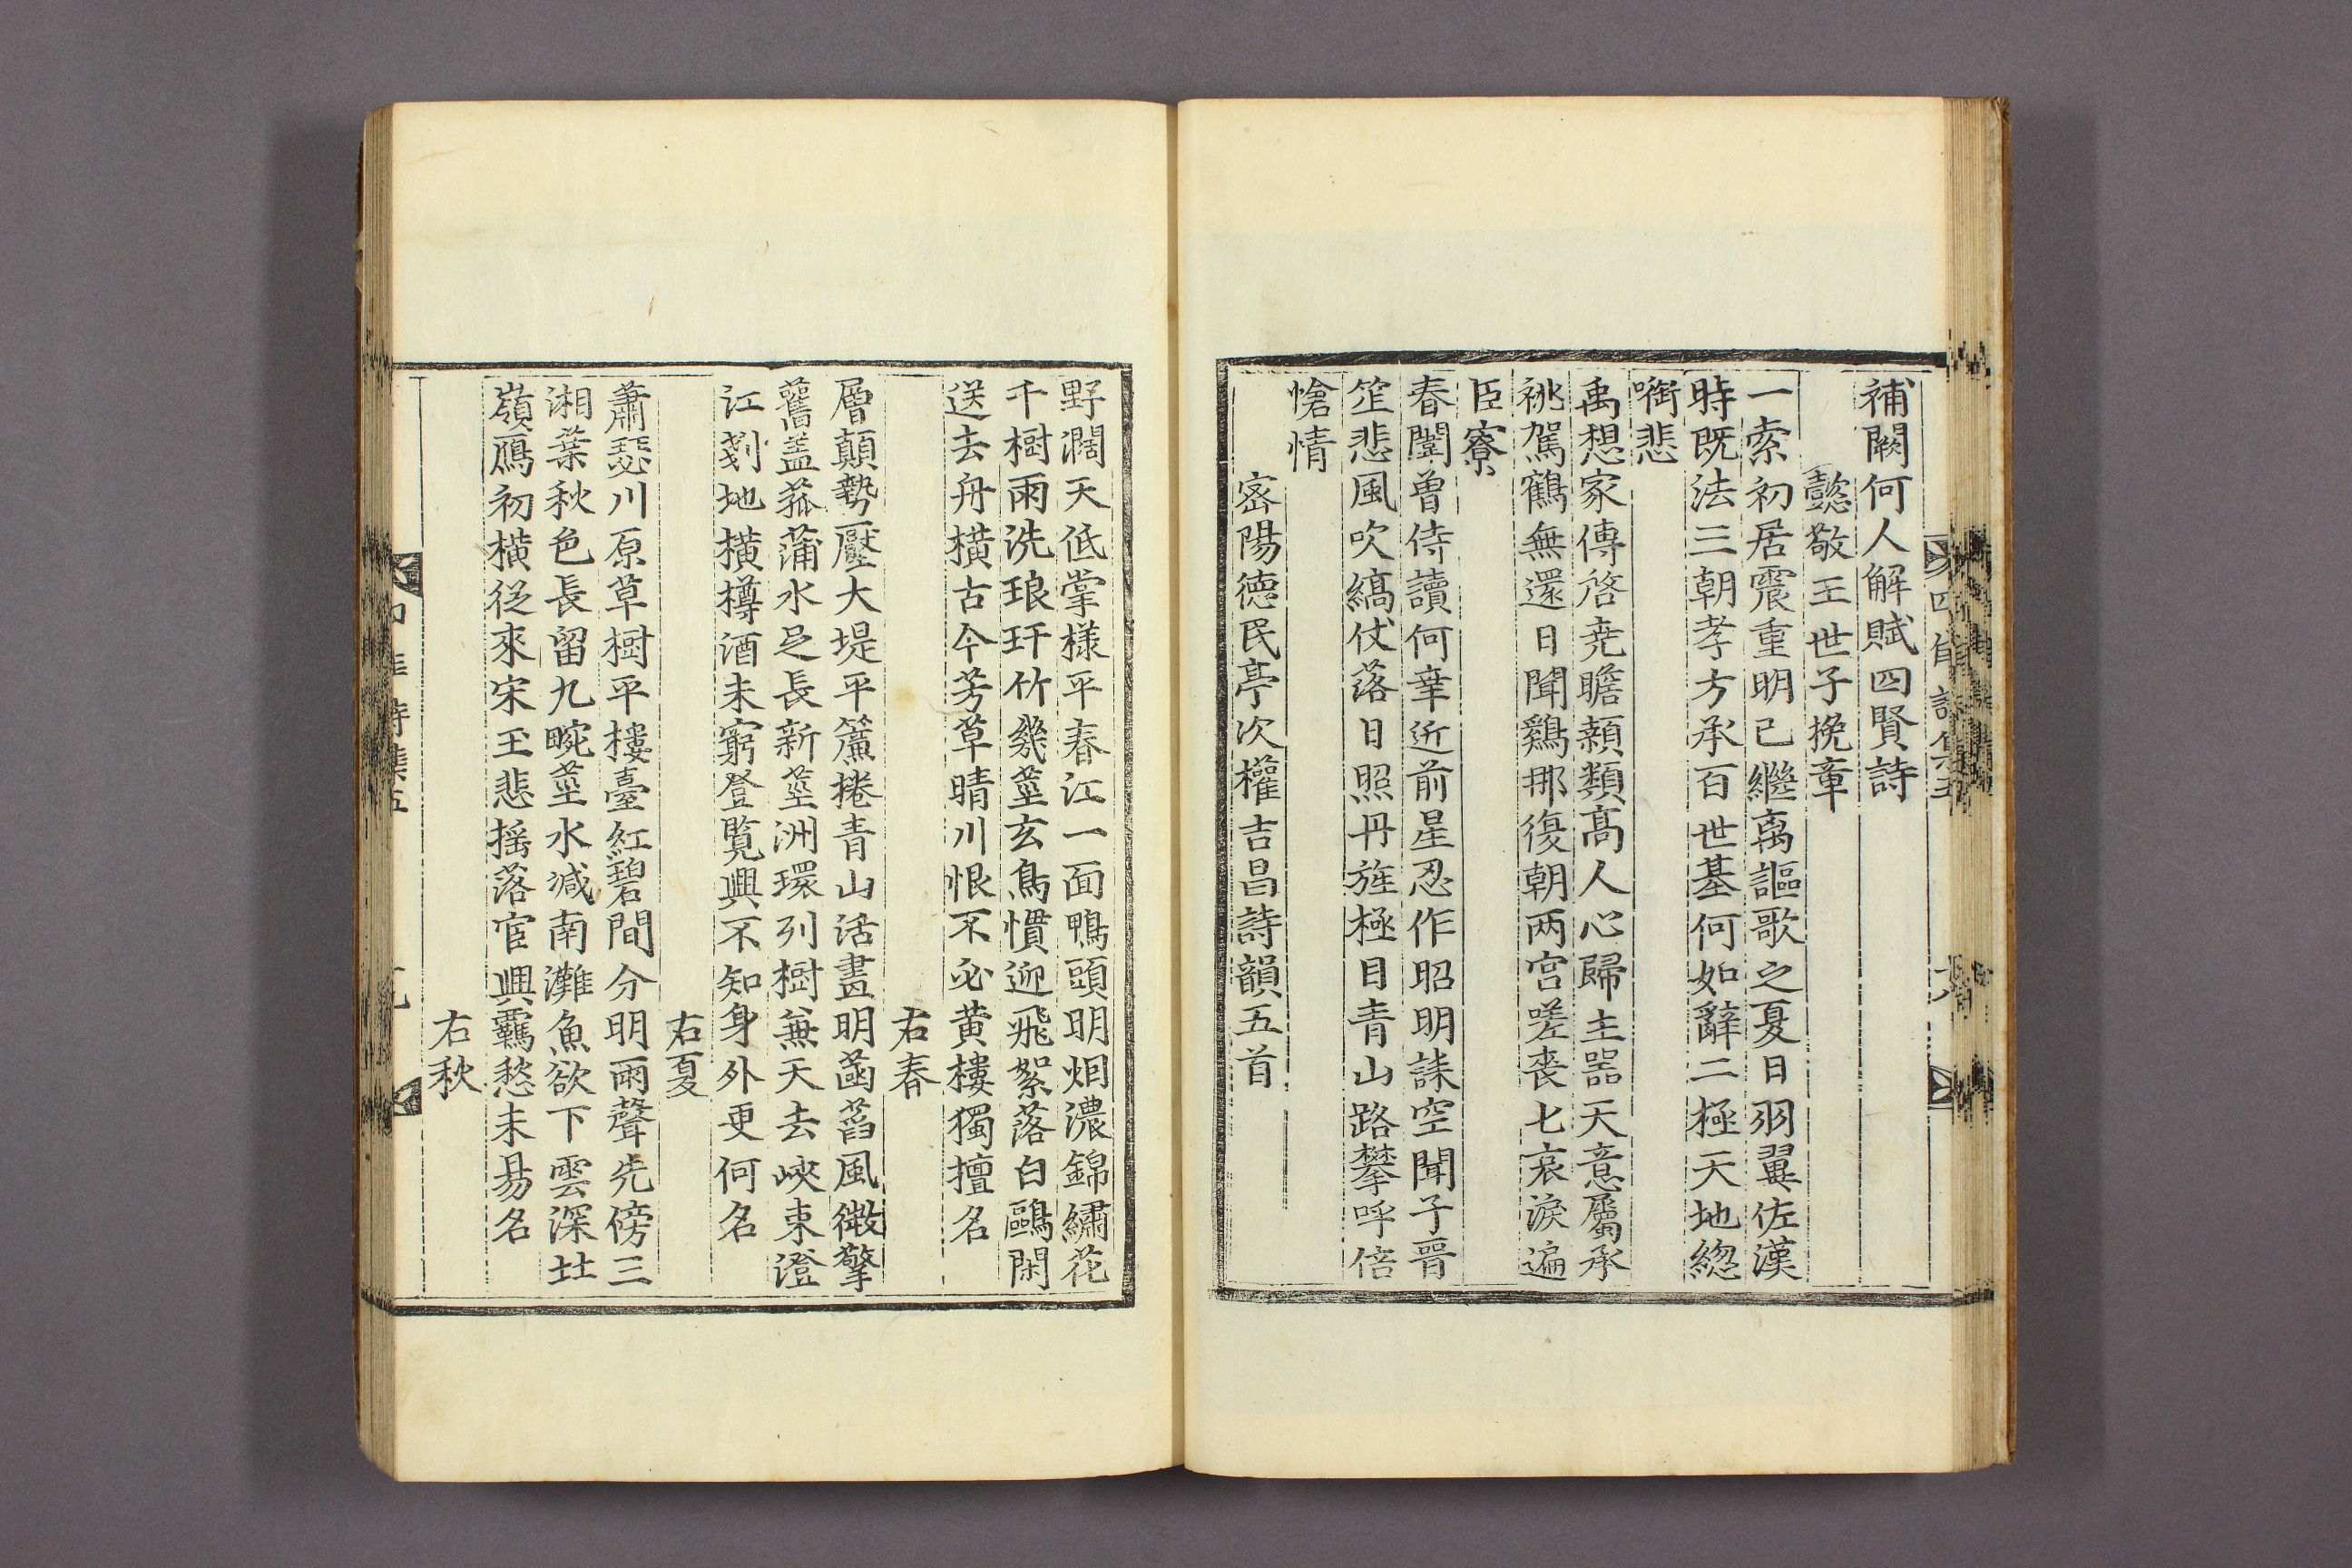 補闕何人解賦四賢詩
懿敬王世子挽章
一索初居震重明已繼离謳歌之夏日羽翼佐漢
時既法三朝孝方承百世基何如辭二極天地緫
銜悲
禹想家傳啓堯瞻顙類高人心歸主器天意屬承
祧駕鶴無還日聞鷄那復朝两宫嗟喪七哀淚遍
臣寮
春闈曾侍讀何幸近前星忍作昭明誄空聞子晋
笙悲風吹縞仗落日照丹旌極目青山路攀呼倍
愴情
密陽德民亭次權吉昌詩韻五首
野濶天低掌樣平春江一面鴨頭明烟濃錦繡花
千樹雨洗琅玕竹幾莖玄鳥慣迎飛絮落白鷗閑
送去舟横古今芳草晴川恨不必黄樓獨擅名
右春
層顛勢壓大堤平簾捲青山活畫明菡萏風微擎
舊盖菰蒲水足長新莖洲環列樹兼天去峽束澄
江剗地横樽酒未窮登覧興不知身外更何名
右夏
蕭瑟川原草樹平樓臺紅碧間分明雨聲先傍三
湘葉秋色長留九畹莖水减南灘魚欲下雲深壯
嶺鴈初横従來宋玉悲摇落宦興羈愁未易名
右秋